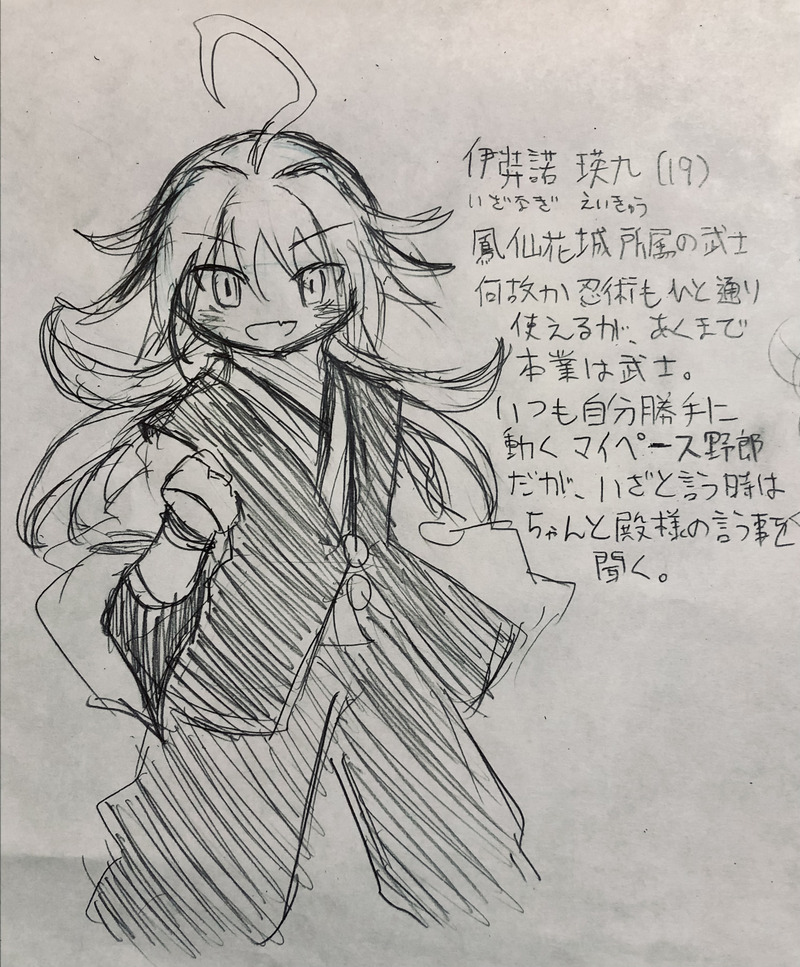 伊弉諾 瑛九 (19)
いざなぎ えいきゅう
鳳仙花城所属の武士
何故か忍術もひと通り
使えるが、あくまで
本業は武士。
いつも自分勝手に
動くマイペース野郎
だが、いざと言う時は
ちゃんと殿様の言う事を
聞く。